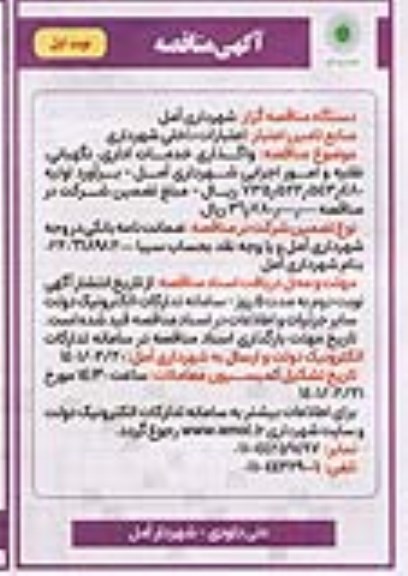 آگهی مناقصه
نوبت اول
دستگاه مناقصه گزار: شهرداری آمل
منابع تامین اعتبار: اعتبارات داخلی شهرداری
موضوع مناقصه: واگذاری خدمات اداری، نگهبانی،
نقلیه و امور اجرایی شهرداری آمل - برآورد اولیه
ریال - مبلغ تضمین شرکت در
مناقصه ریال
نوع تضمین شرکت در مناقصه: ضمانت نامه بانکی در وجه
شهرداری آمل و یا وجه نقد بحساب سیبا
بنام شهرداری آمل
مهلت و محل دریافت اسناد مناقصه: از تاریخ انتشار آگهی
نوبت دوم به مدت ۵ روز - سامانه تدارکات الکترونیک دولت
سایر جزئیات و اطلاعات در اسناد مناقصه قید شده است.
تاریخ مهلت بارگذاری اسناد مناقصه در سامانه تدارکات
الکترونیک دولت و ارسال به شهرداری آمل:
تاریخ تشکیل کمیسیون معاملات: ساعت ۱۴:۳۰ مورخ
برای اطلاعات بیشتر به سامانه تدارکات الکترونیک دولت
و سایت شهرداری www.amol.ir رجوع گردد.
نمابر:
تلفن:
علی داودی - شهردار آمل